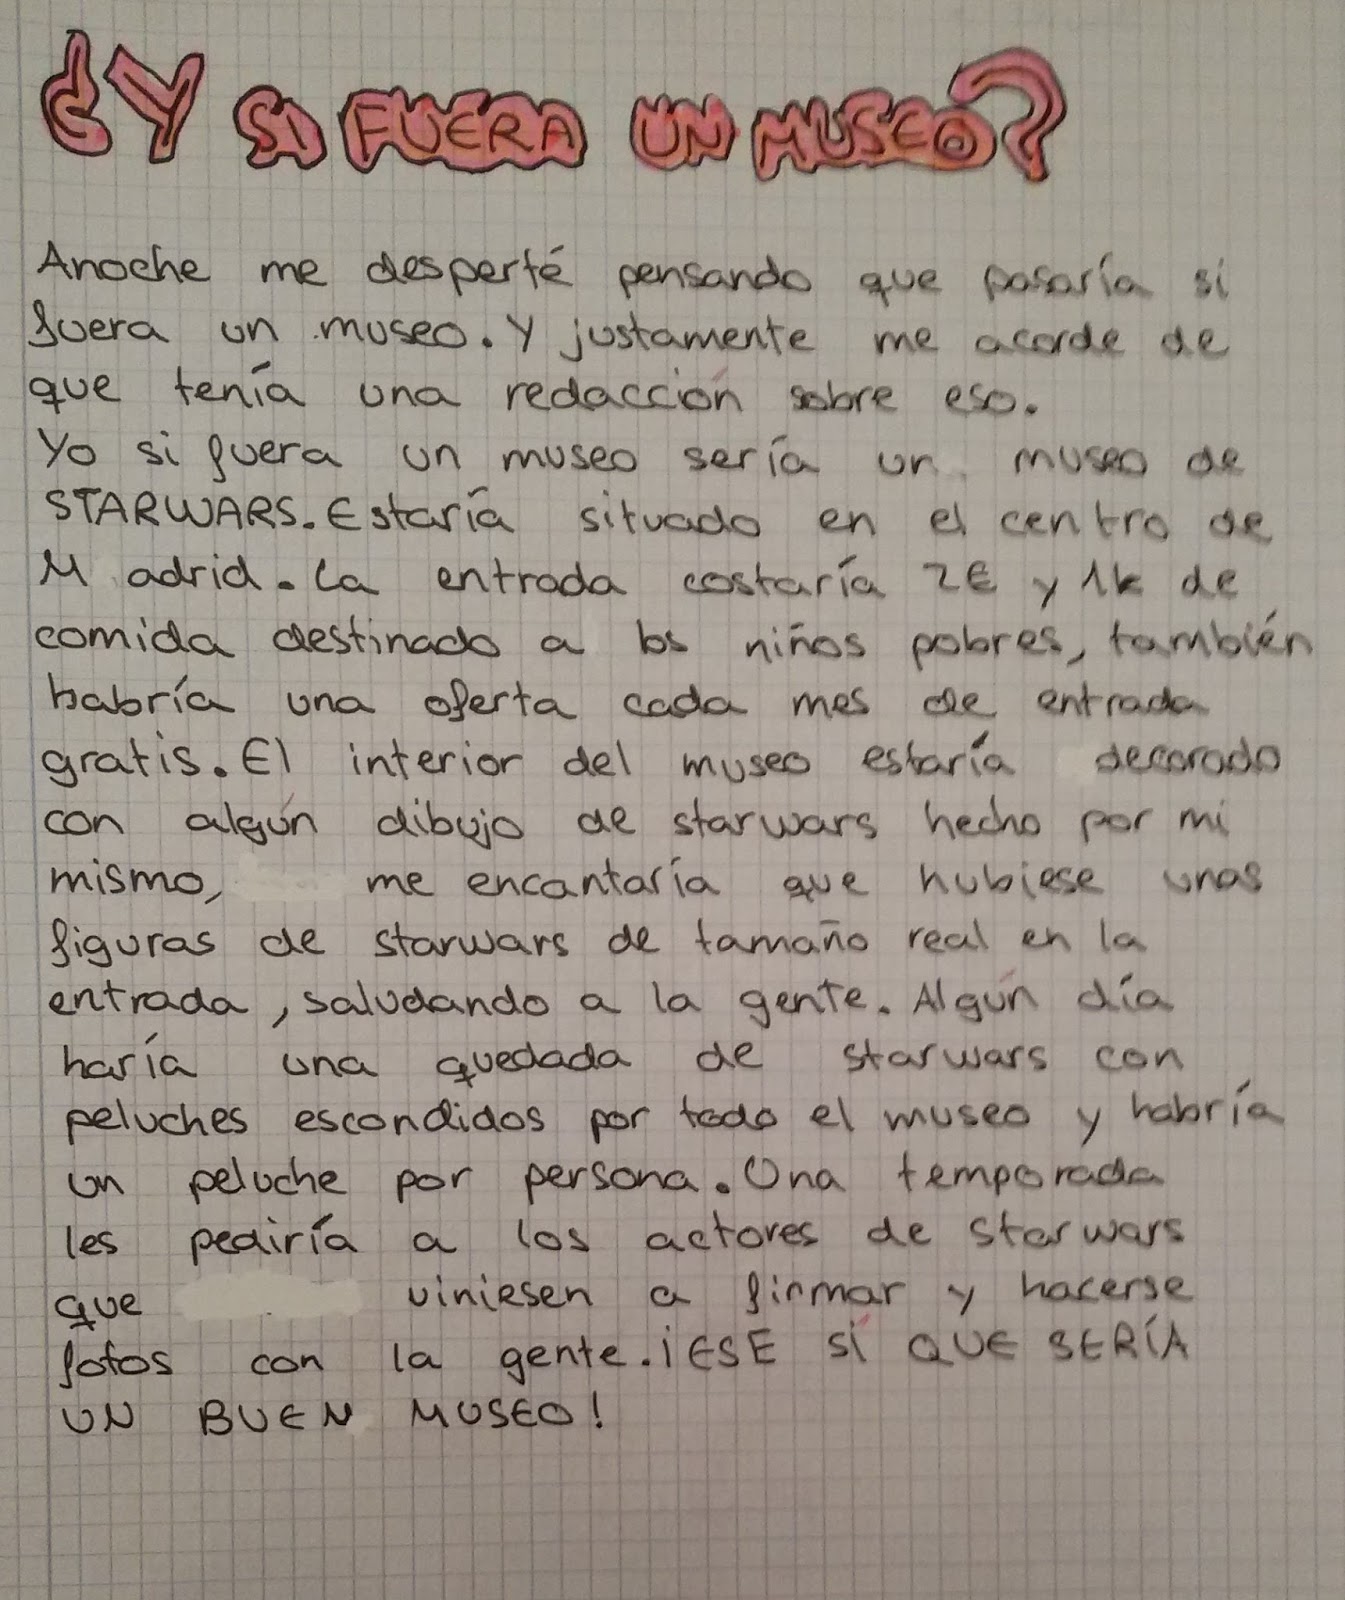 ¿Y SI FUERA UN MUSEO?
Anoche me desperté pensando que pasaría si
fuera un museo. Y justamente me acorde de
que tenía una redacción sobre eso.
Yo si fuera un museo sería un museo de
STARWARS. Estaría situado en el centro de
Madrid. La entrada costaría 2€ y 1k de
comida destinado a los niños pobres, también
habría una oferta cada mes de entrada
gratis. El interior del museo estaría decorado
con algún dibujo de starwars hecho por mi
mismo, me encantaría que hubiese unas
figuras de starwars de tamaño real en la
entrada, saludando a la gente. Algún día
haría una quedada de starwars con
peluches escondidos por todo el museo y habría
un peluche por persona. Una temporada
les pediría a los actores de starwars
que viniesen a firmar y hacerse
fotos con la gente. ¡ESE SÍ QUE SERÍA
UN BUEN MUSEO!